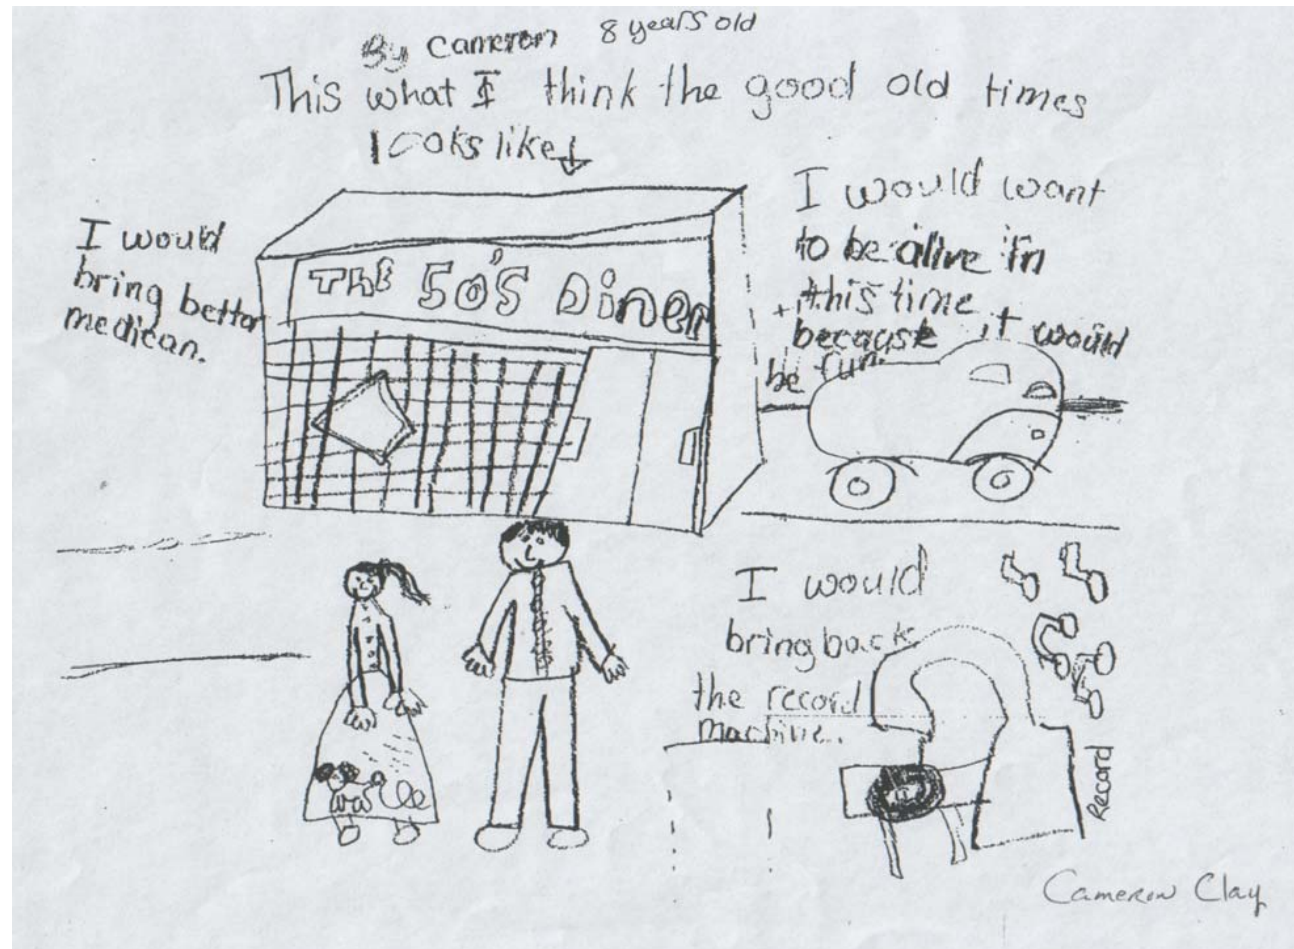 By Cameron 8 years old
This what I think the good old times
looks like
I would
bring better
medican.
The 50's Diner
I would want
to be alive in
this time
because it would
be fun
I would
bring back
the record
machine.
Record
Cameron Clay